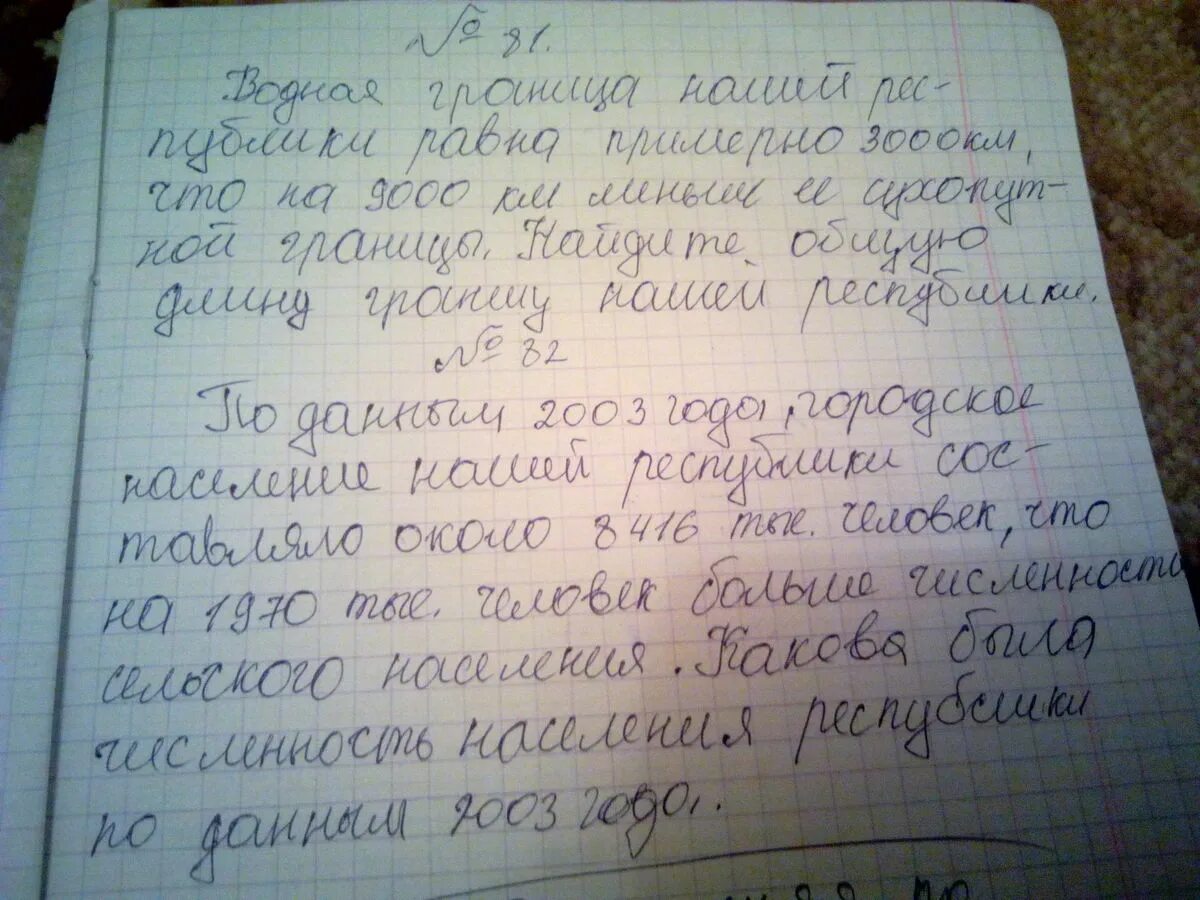 № 81.
Водная граница нашей рес-
публики равна примерно 3000км,
что на 9000 км меньше ее сухопут-
ной границы. Найдите общую
длину границу нашей республики.
№ 82
По данным 2003 года, городское
население нашей республики сос-
тавляло около 8416 тыс. человек, что
на 1970 тыс. человек больше численность
сельского населения. Какова была
численность населения республики
по данным 2003 года.